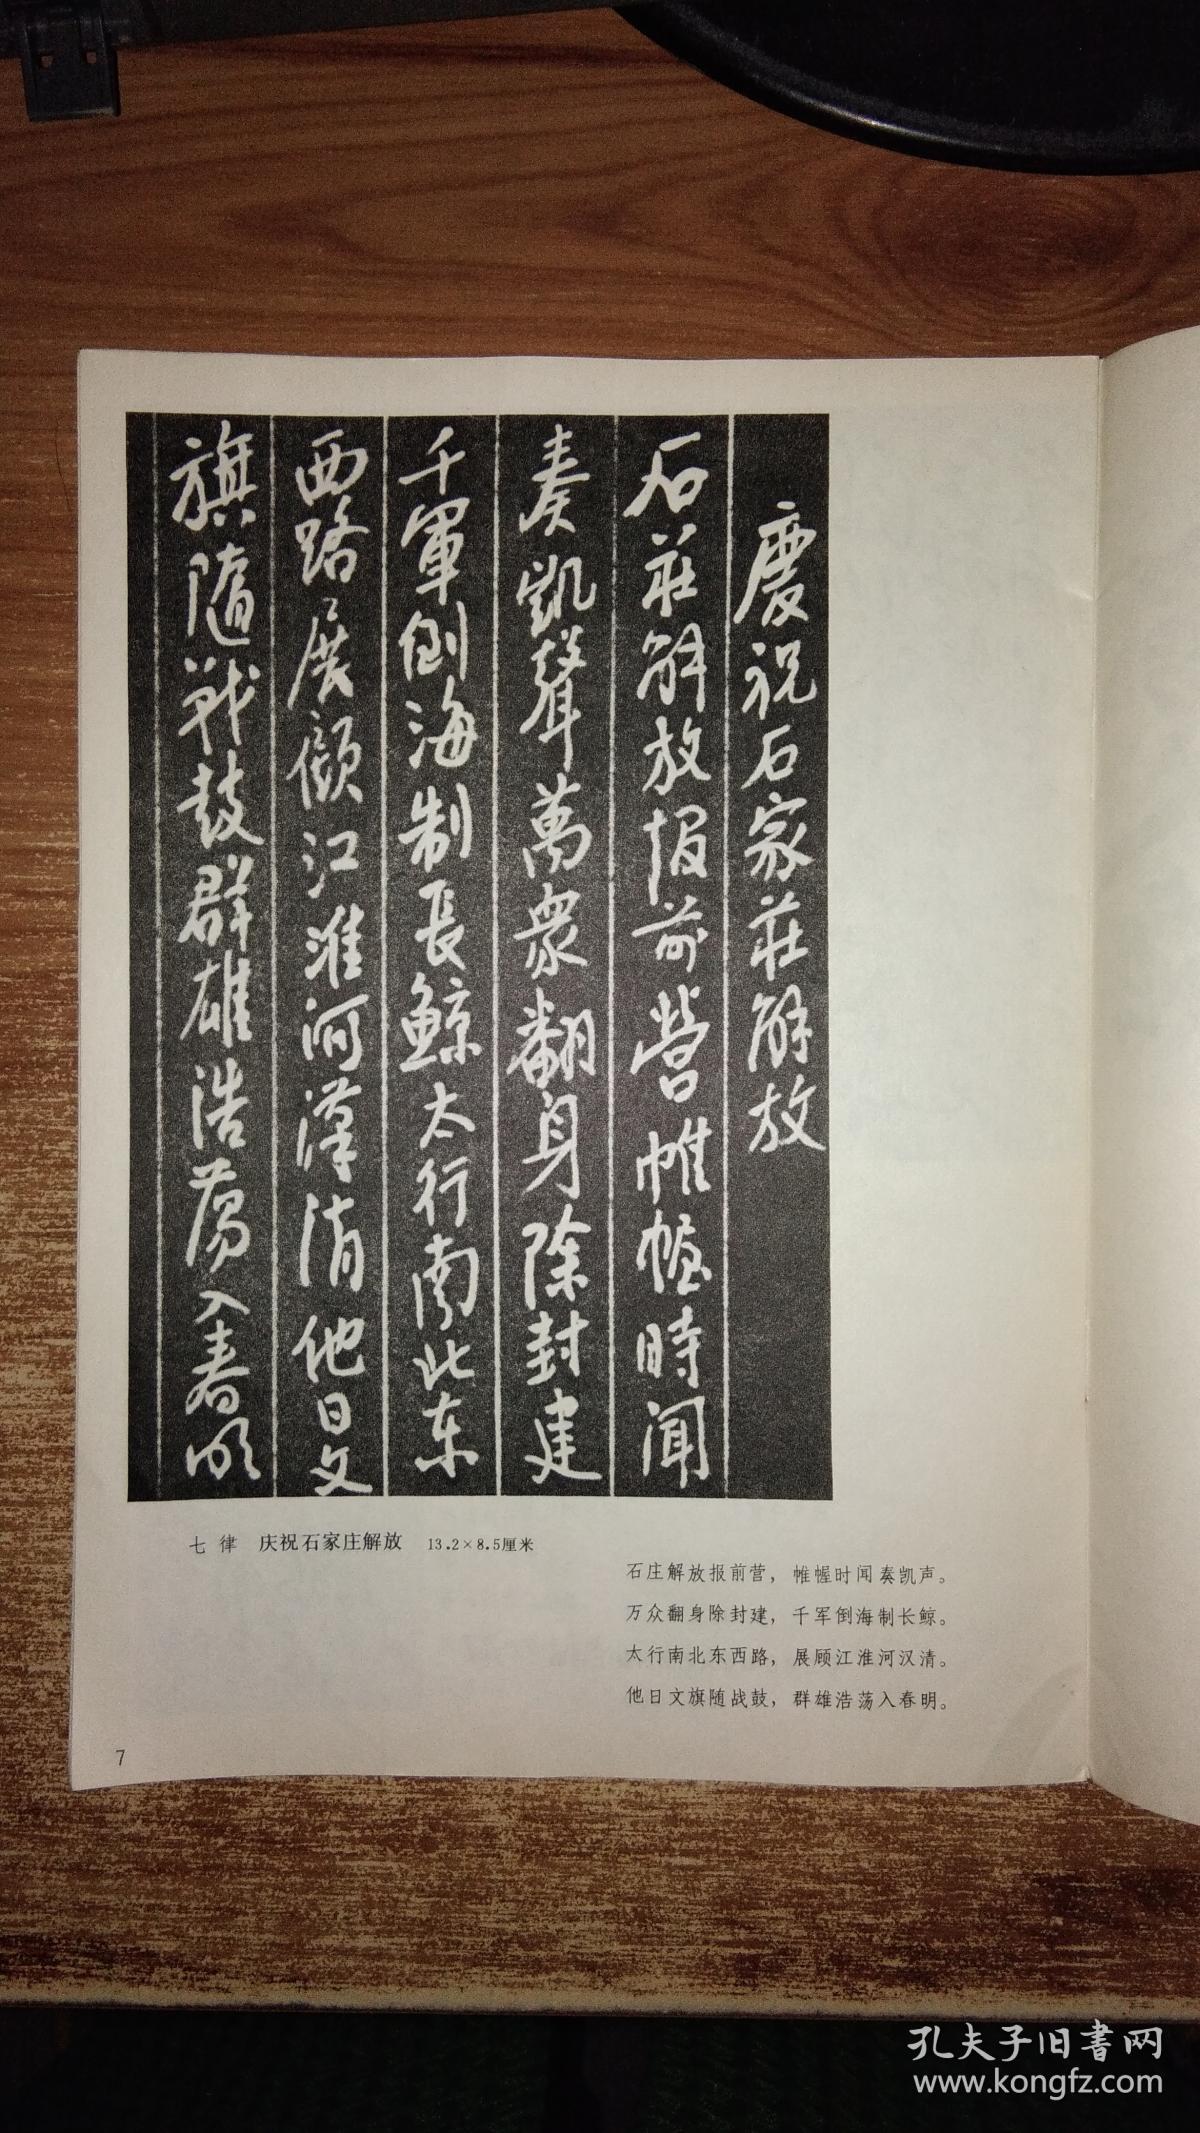 慶祝石家莊解放
石莊解放报前营帷幄時闻
奏凯聲萬眾翻身除封建
千軍倒海制長鯨太行南北东
西路展顾江淮河漢清他日文
旗隨戰鼓群雄浩荡入春明
七律 庆祝石家庄解放 13.2×8.5厘米
石庄解放报前营，帷幄时闻奏凯声。
万众翻身除封建，千军倒海制长鲸。
太行南北东西路，展顾江淮河汉清。
他日文旗随战鼓，群雄浩荡入春明。
7
孔夫子旧書网
www.kongfz.com